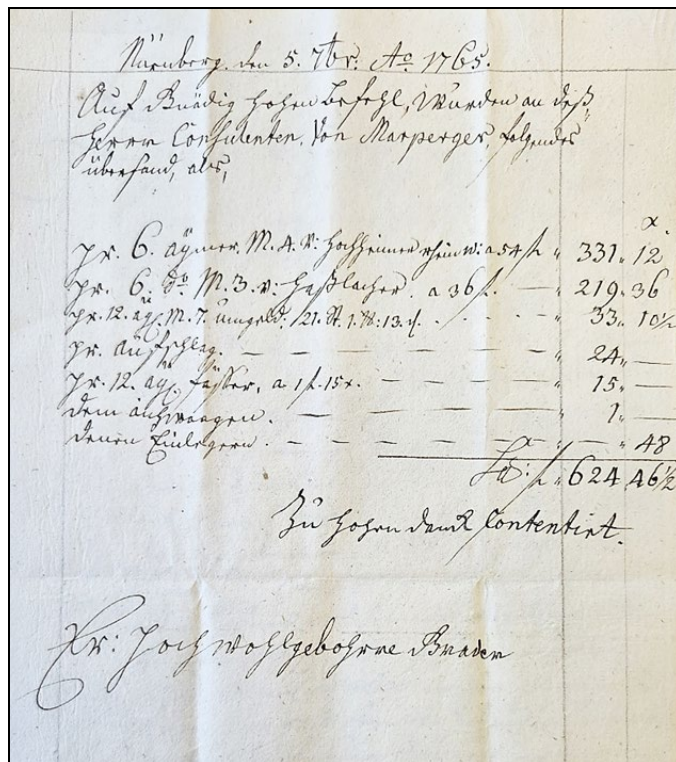 Nürnberg. den 5. 7br: Ao 1765.
Auf Gnädig hohen Befehl, wurden an deß
Herrn Consulenten, Von Marperger, folgendes
übersand, als,
x.
pr. 6. aÿmer M. 4. v: Hochheimer rheinw: a 54 f. „ 331. 12
pr. 6. do M. 3. v: Haßlacher. a 36 f. — „ 219. 36
pr. 12. aÿ. M. 7. umgeld. „ 33. 10½
pr. aufschlag. — — — — — — „ 24. —
pr. 12. aÿ. fässer, a 1 f. 15 x. — — — — „ 15. —
dem — — — — — — „ 1. —
denen Einlegern. — — — — — „ — „ 48
Sa: f. „ 624 46½
Zu hohen danck Contentirt.
Er: Hochwohlgebohrne Gnaden